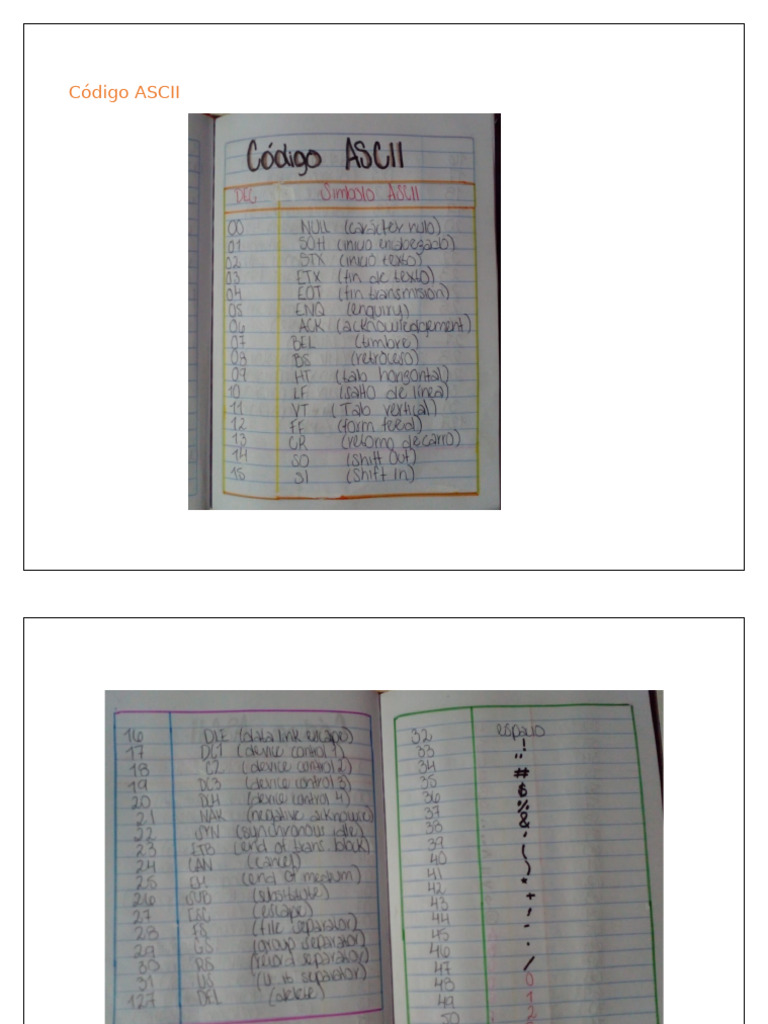 Código ASCII
Código ASCII
DEC Simbolo ASCII
00 NULL (carácter nulo)
01 SOH (inicio encabezado)
02 STX (inicio texto)
03 ETX (fin de texto)
04 EOT (fin transmision)
05 ENQ (enquiry)
06 ACK (acknowledgement)
07 BEL (timbre)
08 BS (retroceso)
09 HT (tab horizontal)
10 LF (salto de línea)
11 VT (Tab vertical)
12 FF (form feed)
13 CR (retorno de carro)
14 SO (Shift Out)
15 SI (Shift In)
16 DLE (data link escape)
17 DC1 (device control 1)
18 C2 (device control 2)
19 DC3 (device control 3)
20 DC4 (device control 4)
21 NAK (negative
22 SYN (synchronous idle)
23 ETB (end of trans. block)
24 CAN (cancel)
25 EM (end of medium)
26 SUB (substitute)
27 ESC (escape)
28 FS (file separator)
29 GS (group separator)
30 RS (record separator)
31 US separator)
127 DEL (delete)
32 espacio
33 !
34 "
35 #
36 $
37 %
38 &
39 '
40 (
41 )
42 *
43 +
44 ,
45 -
46 .
47 /
48 0
49 1
50 2